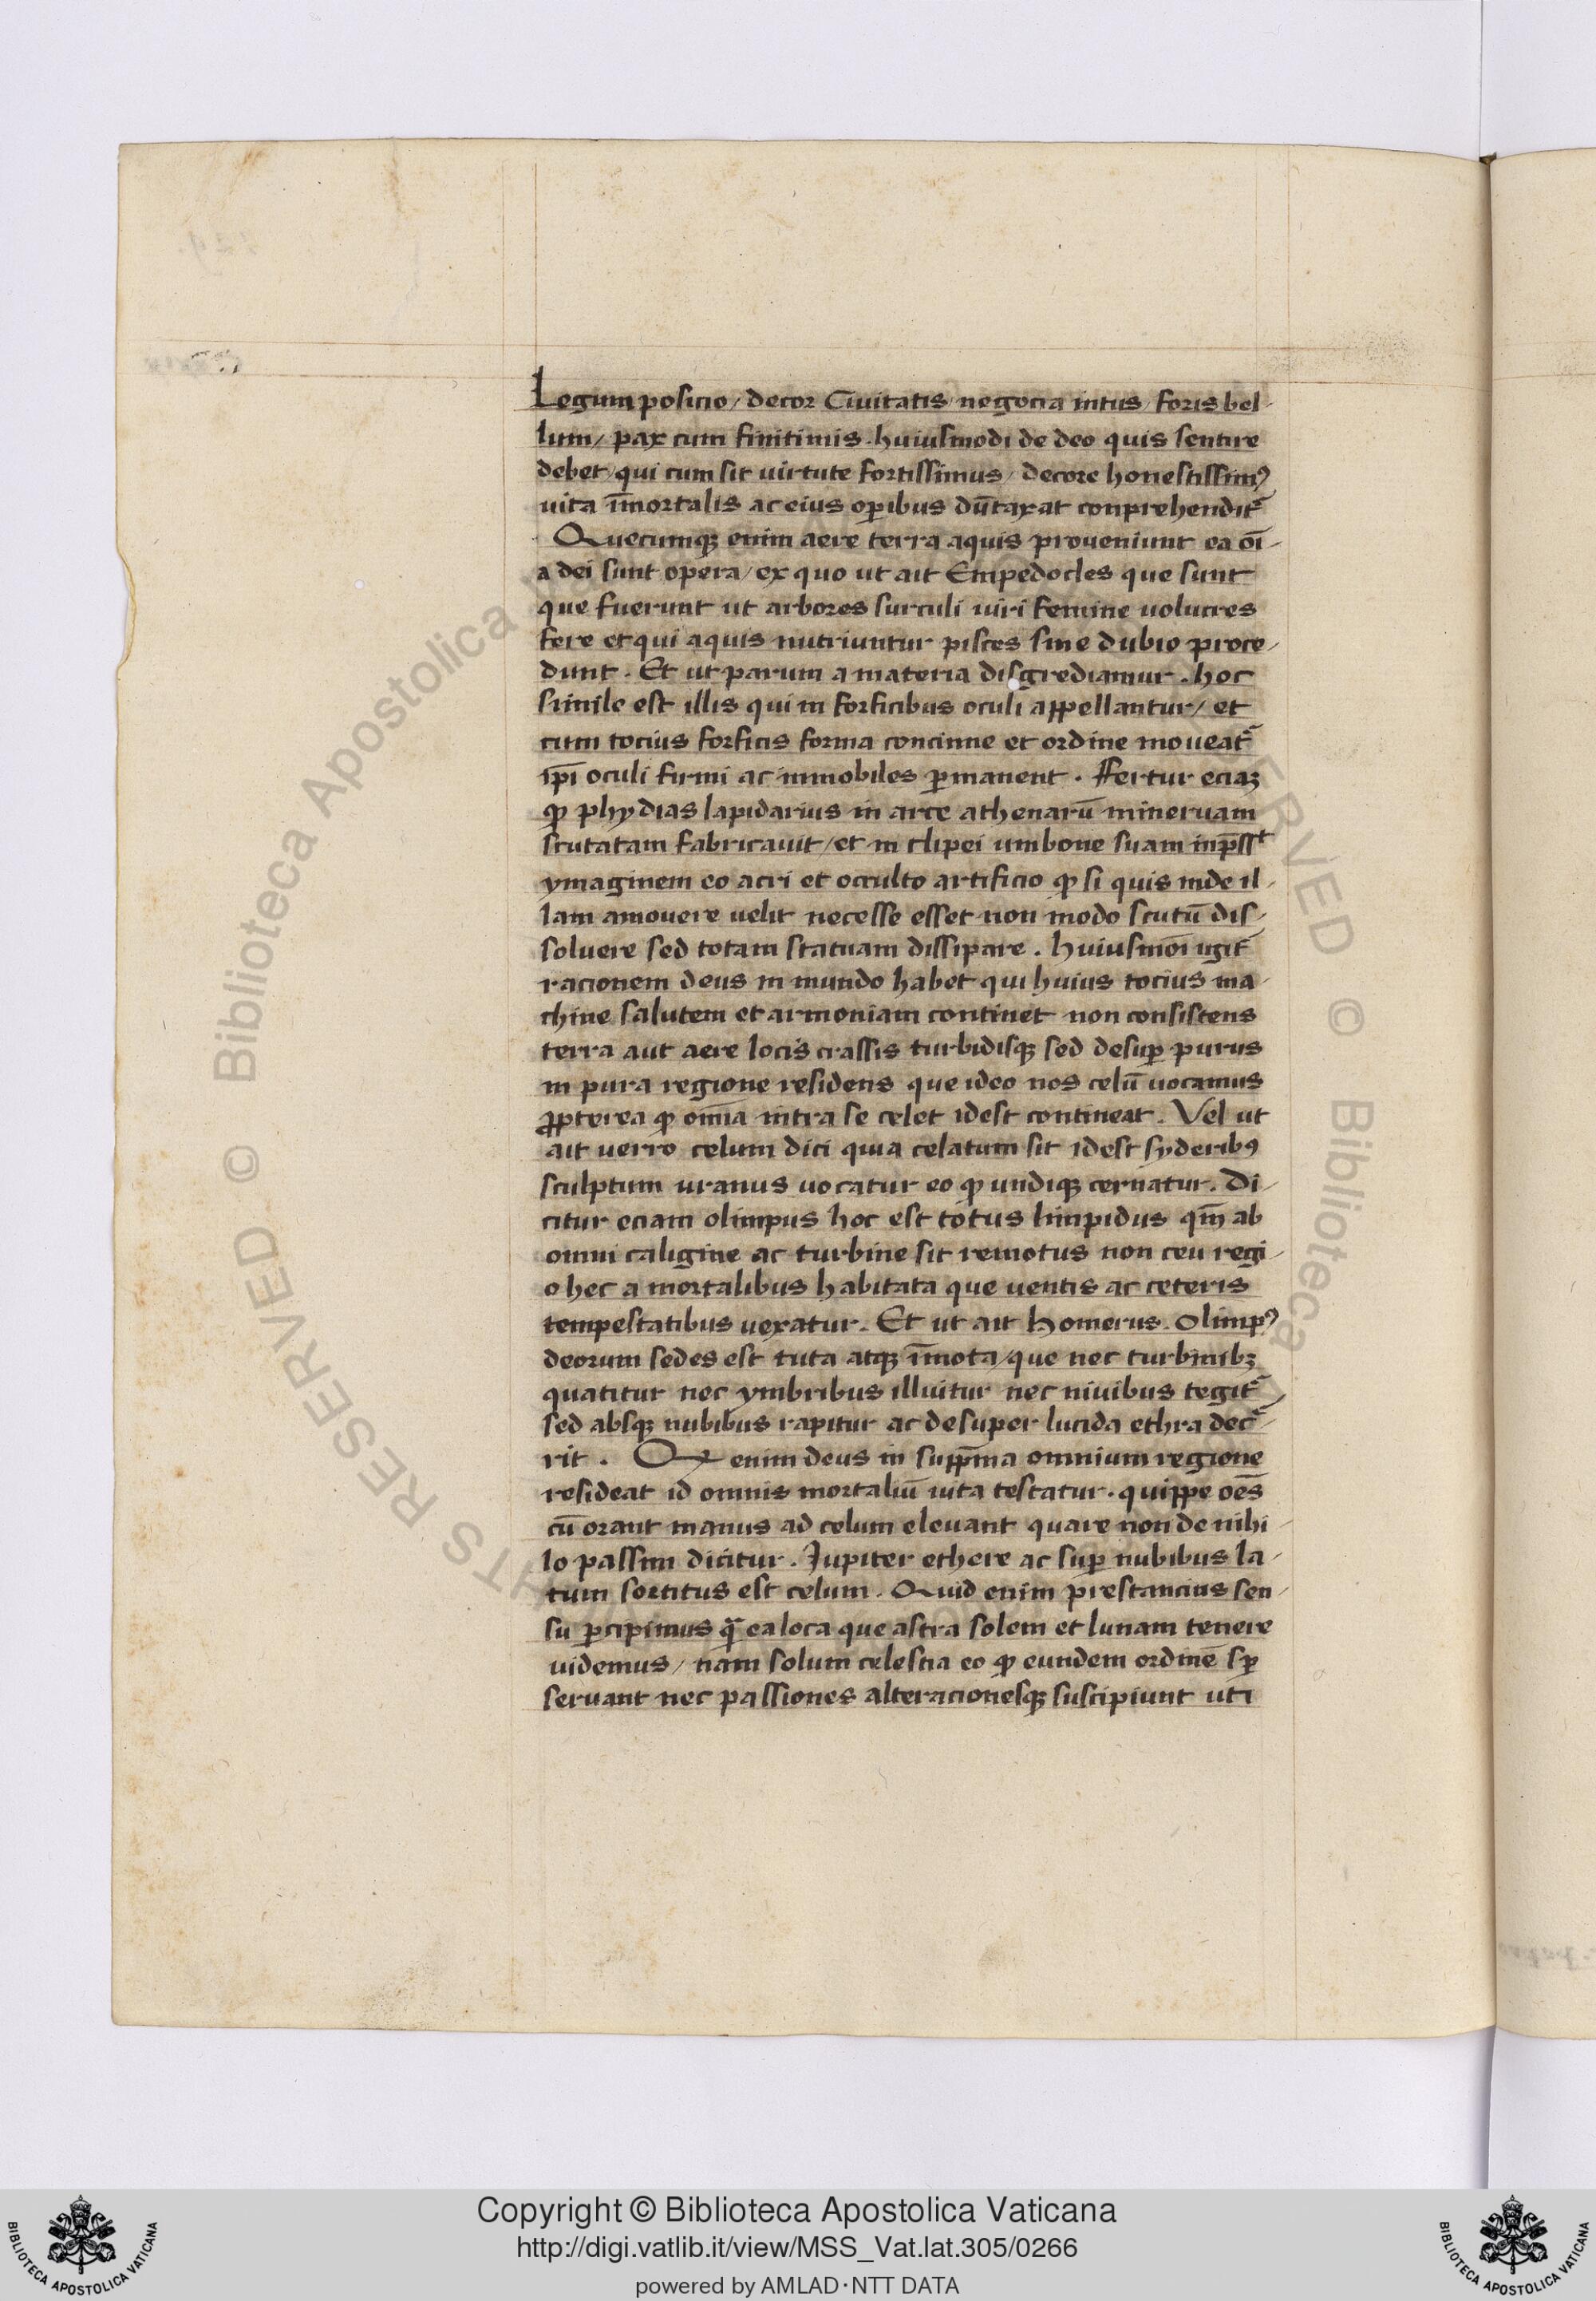 Legum posicio / decor Ciuitatis / negocia intus / foris bel-
lum / pax cum finitimis . huiusmodi de deo quis sentire
debet / qui cum sit uirtute fortissimus / decore honestissimꝰ
uita īmortalis ac eius oꝑibus dūtaxat conprehendit᷑
Quecumqꝫ enim aere terra aquis proueniunt ea oī-
a dei sunt opera / ex quo ut ait Empedocles que sunt
que fuerunt ut arbores surculi uiri femine uolucres
fere et qui aquis nutriuntur pisces sine dubio proce-
dunt . Et ut parum a materia disgrediamur . hoc
simile est illis qui in forficibus oculi appellantur / et
cum tocius forficis forma concinne et ordine moueat᷑
ip̄i oculi firmi ac inmobiles ꝑmanent . ffertur eciaꝫ
ꝙ phydias lapidarius in arce athenarū mineruam
scutatam fabricauit / et in clipei umbone suam inp̄ss͛t
ymaginem eo acri et occulto artificio ꝙ si quis inde il-
lam amouere uelit necesse esset non modo scutū dis-
soluere sed totam statuam dissipare . huiusmōi igit᷑
racionem deus in mundo habet qui huius tocius ma-
chine salutem et armoniam continet non consistens
terra aut aere locis crassis turbidisqꝫ sed desuꝑ purus
in pura regione residens que ideo nos celū uocamus
ꝓpterea ꝙ om̄ia intra se celet idest contineat . Vel ut
ait uerro celum dici quia celatum sit idest syderibꝰ
sculptum uranus uocatur eo ꝙ undiqꝫ cernatur . Di-
citur eciam olimpus hoc est totus limpidus qm̄ ab
omni caligine ac turbine sit remotus non ceu regi-
o hec a mortalibus habitata que uentis ac ceteris
tempestatibus uexatur . Et ut ait homerus . olimpꝰ
deorum sedes est tuta atqꝫ īmota / que nec turbinibꝫ
quatitur nec ymbribus illuitur nec niuibus tegit᷑
sed absqꝫ nubibus rapitur ac desuper lucida ethra dec᷑-
rit . Ꝙ enim deus in supp̄ma omnium regione
resideat id omnis mortaliū uita testatur . quippe oēs
cū orant manus ad celum eleuant quare non de nihi-
lo passim dicitur . Jupiter ethere ac suꝑ nubibus la-
tum sortitus est celum . Quid enim prestancius sen-
su ꝑcipimus qᷓ ea loca que astra solem et lunam tenere
uidemus / nam solum celestia eo ꝙ eundem ordinē sꝑ
seruant nec passiones alteracionesqꝫ suscipiunt uti
Copyright © Biblioteca Apostolica Vaticana
http://digi.vatlib.it/view/MSS_Vat.lat.305/0266
powered by AMLAD·NTT DATA